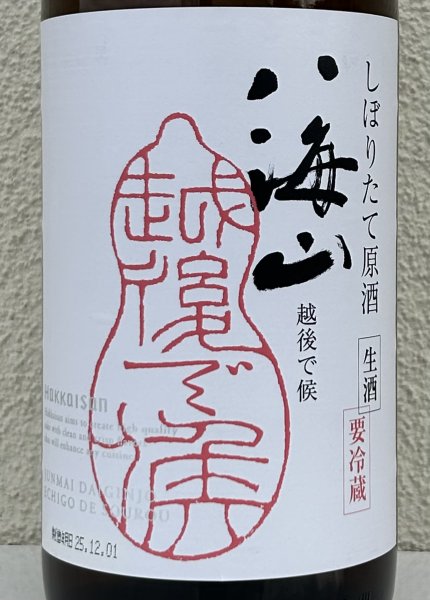 しぼりたて原酒
生酒
要冷蔵
八海山
越後で候
越後で候
HAKKAISAN
Hakkaisan aims to create high quality
sake with clean and crisp
that will enhance any cuisine
JUNMAI DAIGINJO
ECHIGO DE SOUROU
製造年月日 25.12.01